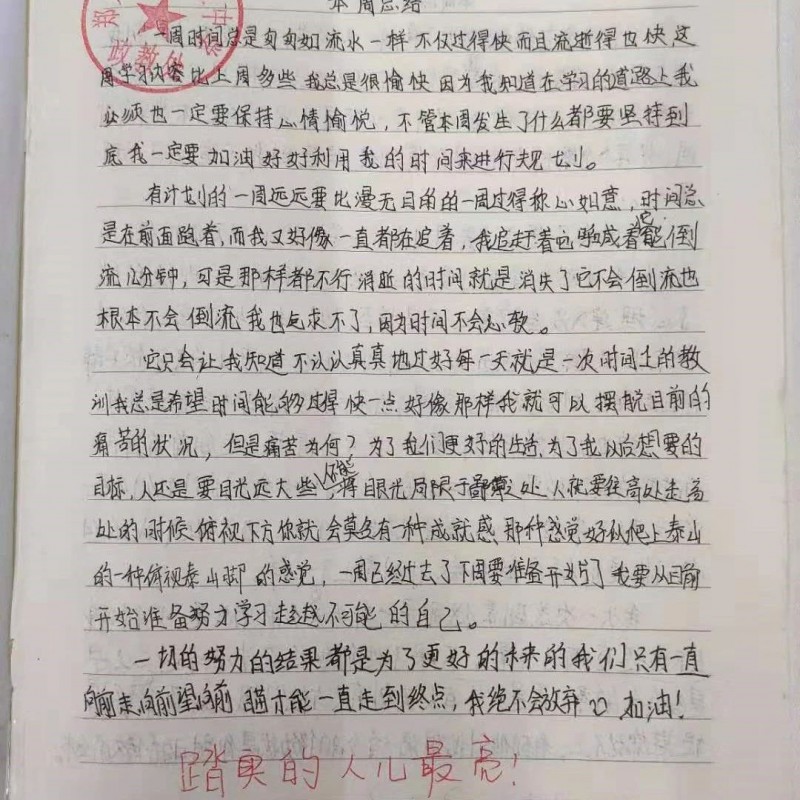 本周总结
政教处
一周时间总是匆匆如流水一样不仅过得快而且流逝得也快这
周学习内容比上周多些我总是很愉快因为我知道在学习的道路上我
必须也一定要保持心情愉悦，不管本周发生了什么都要坚持到
底我一定要加油好好利用我的时间来进行规划。
有计划的一周远远要比漫无目的的一周过得称心如意，时间总
是在前面跑着，而我又好像一直都在追着，我追赶着它 着它能倒
流几分钟，可是那样都不行消逝的时间就是消失了它不会倒流也
根本不会倒流我也乞求不了，因为时间不会心软。
它只会让我知道不认认真真地过好每一天就是一次时间上的教
训我总是希望时间能够过得快一点好像那样我就可以摆脱目前的
痛苦的状况，但是痛苦为何？为了我们更好的生活，为了我以后想要的
目标，人还是要目光远大些，不能将眼光局限于 之处人就要往高处走高
处的时候俯视下方你就会莫名有一种成就感那种感觉好似爬上泰山
的一种俯视泰山脚的感觉，一周已经过去了下周要准备开始了我要从目前
开始准备努力学习超越不可能的自己。
一切的努力的结果都是为了更好的未来的我们只有一直
向前走向前望向前 才能一直走到终点，我绝不会放弃 加油！
踏实的人儿最亮！